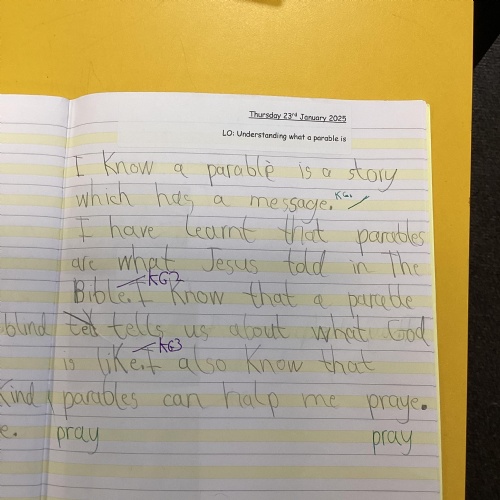 Thursday 23rd January 2025
LO: Understanding what a parable is
I know a parable is a story
which has a message. KG1
I have learnt that parables
are what Jesus told in the
Bible. I KG2 know that a parable
blind ted tells us about what God
is like. I KG3 also know that
kind parables can halp me praye.
e. pray pray